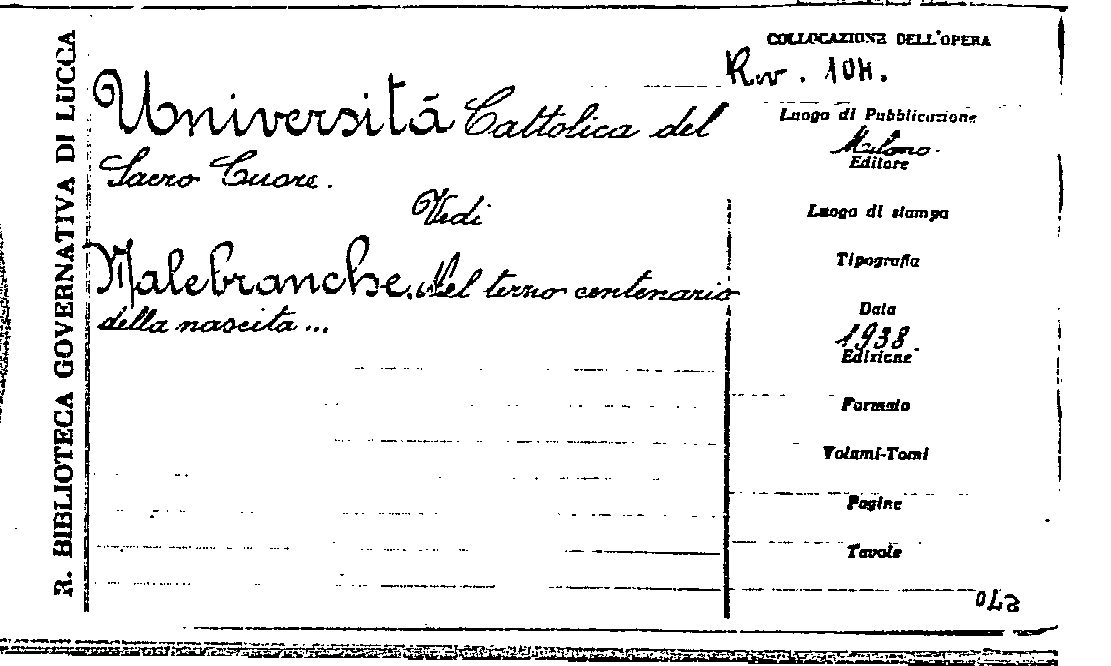 R. BIBLIOTECA GOVERNATIVA DI LUCCA
Università Cattolica del
Sacro Cuore.
Vedi
Malebranche. Nel terzo centenario
della nascita...
COLLOCAZIONE DELL'OPERA
Rv. 104.
Luogo di Pubblicazione
Milano.
Editore
Luogo di stampa
Tipografia
Data
1938.
Edizione
Formato
Volumi-Tomi
Pagine
Tavole